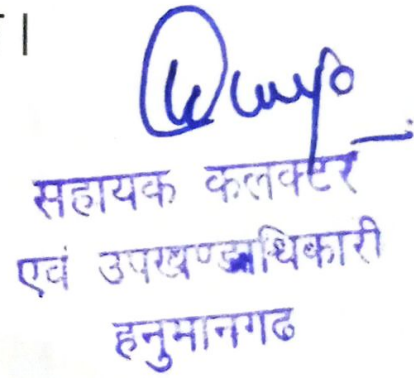 ।
सहायक कलक्टर
एवं उपखण्डाधिकारी
हनुमानगढ